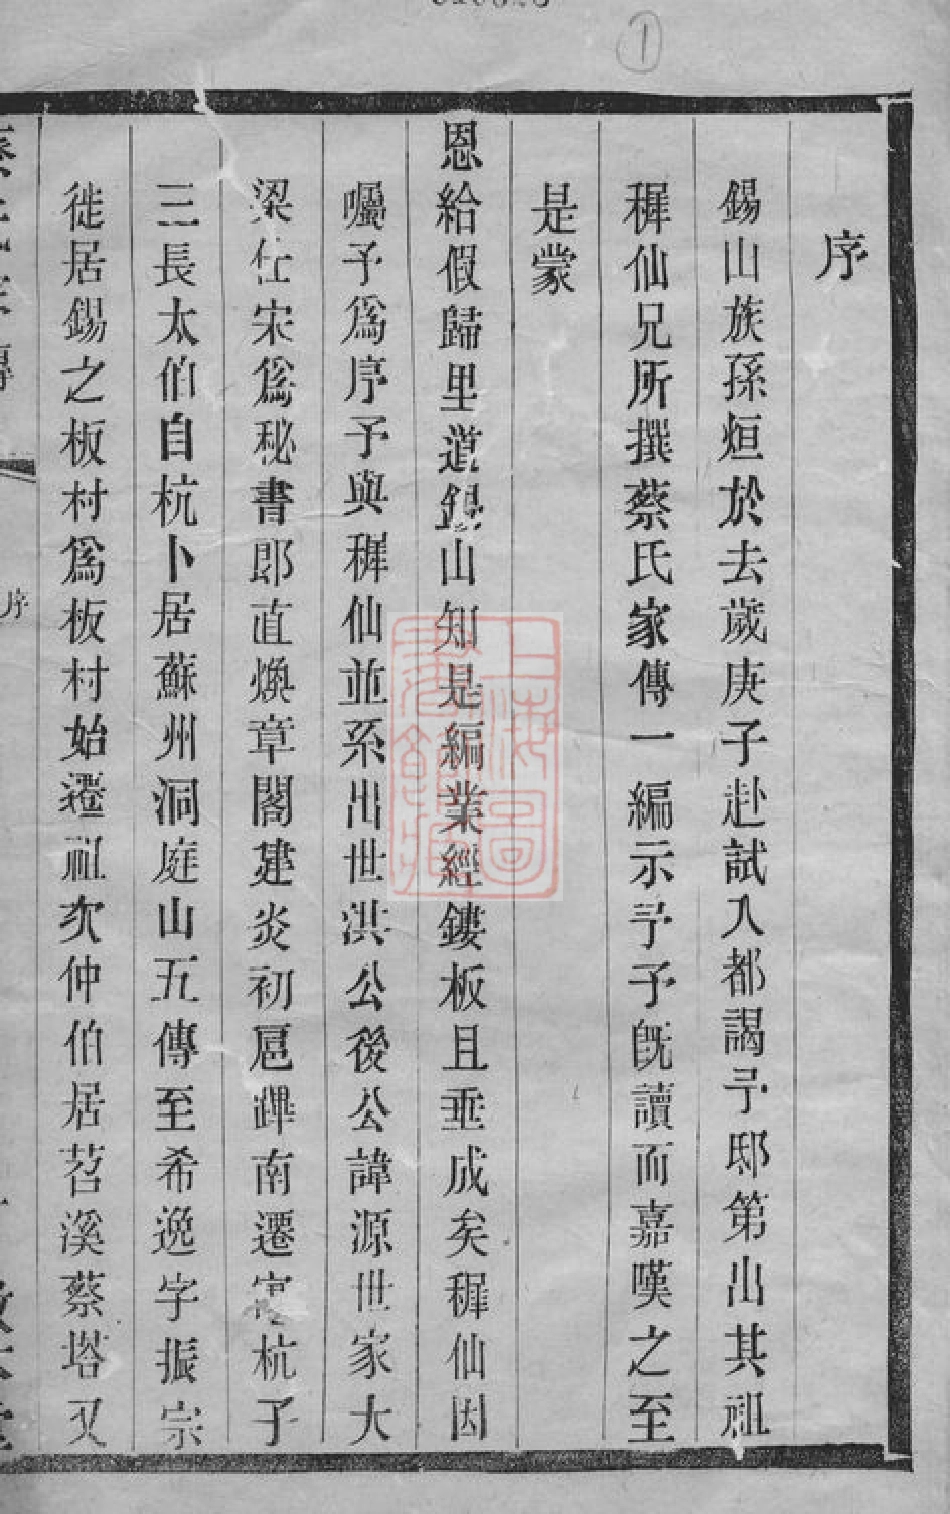 序
錫山族孫烜於去歲庚子赴試入都謁予邸第出其祖
穉仙兄所撰蔡氏家傳一編示予予旣讀而嘉嘆之至
是蒙
恩給假歸里道錫山知是編業經鏤板且垂成矣穉仙因
囑予爲序予與穉仙並系出世洪公後公諱源世家大
梁仕宋爲秘書郎直煥章閣建炎初扈蹕南遷寓杭子
三長太伯自杭卜居蘇州洞庭山五傳至希逸字振宗
徙居錫之板村爲板村始遷祖次仲伯居苕溪蔡塔又
序
上海圖書館藏
1